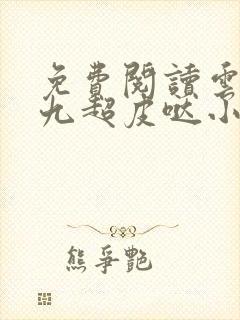 免費閱讀雲
九超皮哒小
熊爭艷